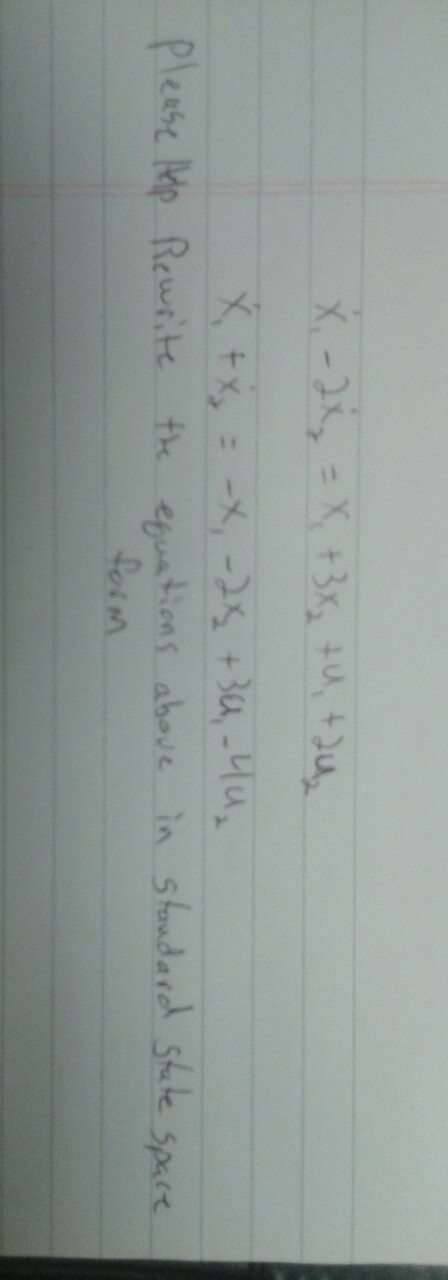 ẋ₁ - 2ẋ₂ = x₁ + 3x₂ + u₁ + 2u₂
ẋ₁ + ẋ₂ = -x₁ - 2x₂ + 3u₁ - 4u₂
Please Help Rewrite the equations above in standard state space
form